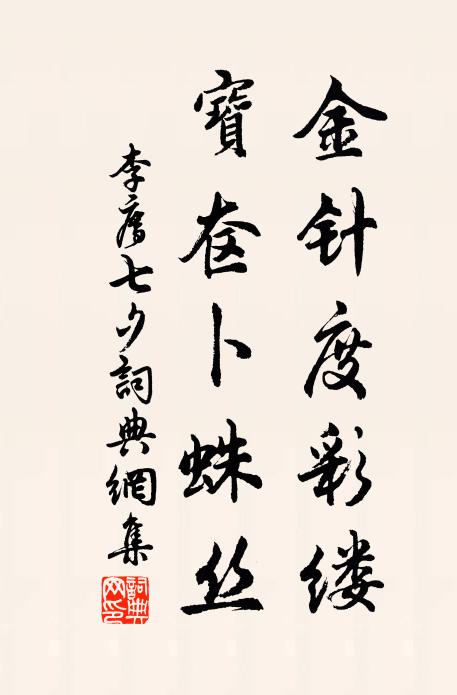 金针度彩缕
寶奁卜蛛丝
李廌七夕詞典網集
詞典网印